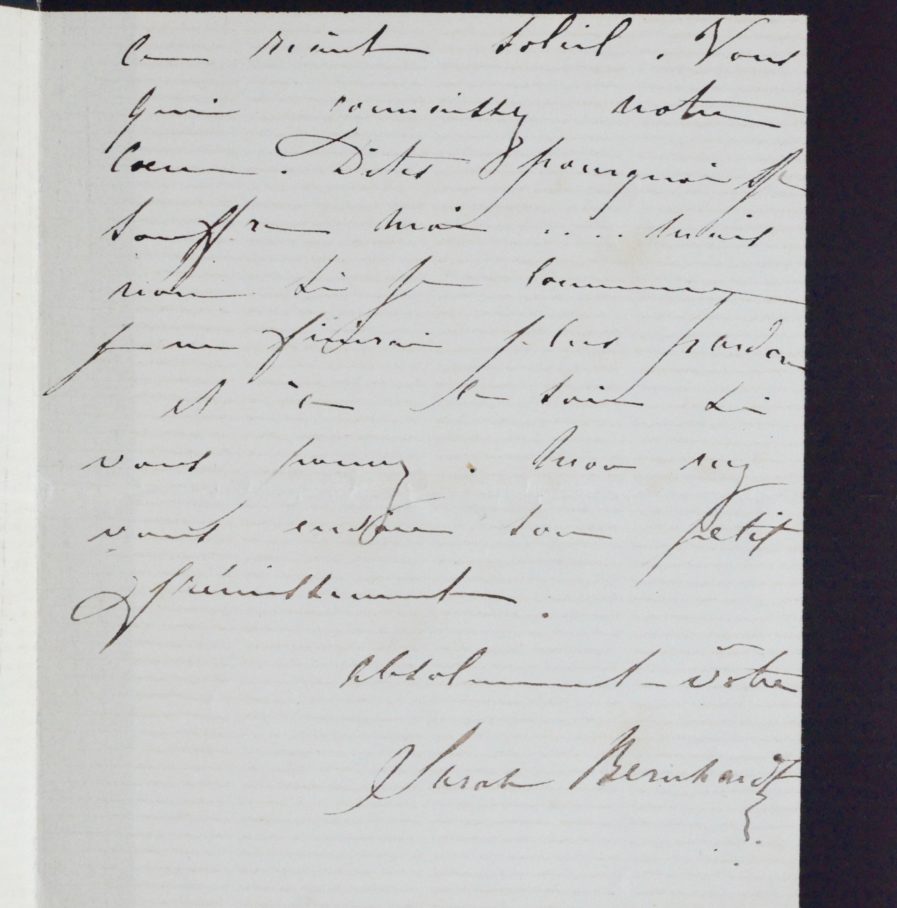 ce riant soleil. Vous
qui connaissez notre
cœur. Dites pourquoi je
souffre moi .... mais
non si je commence
je ne finirai plus pardon
et à ce soir si
vous pouvez. Mon
vous envoie son petit
frémissement.
absolument - vôtre
Sarah Bernhardt